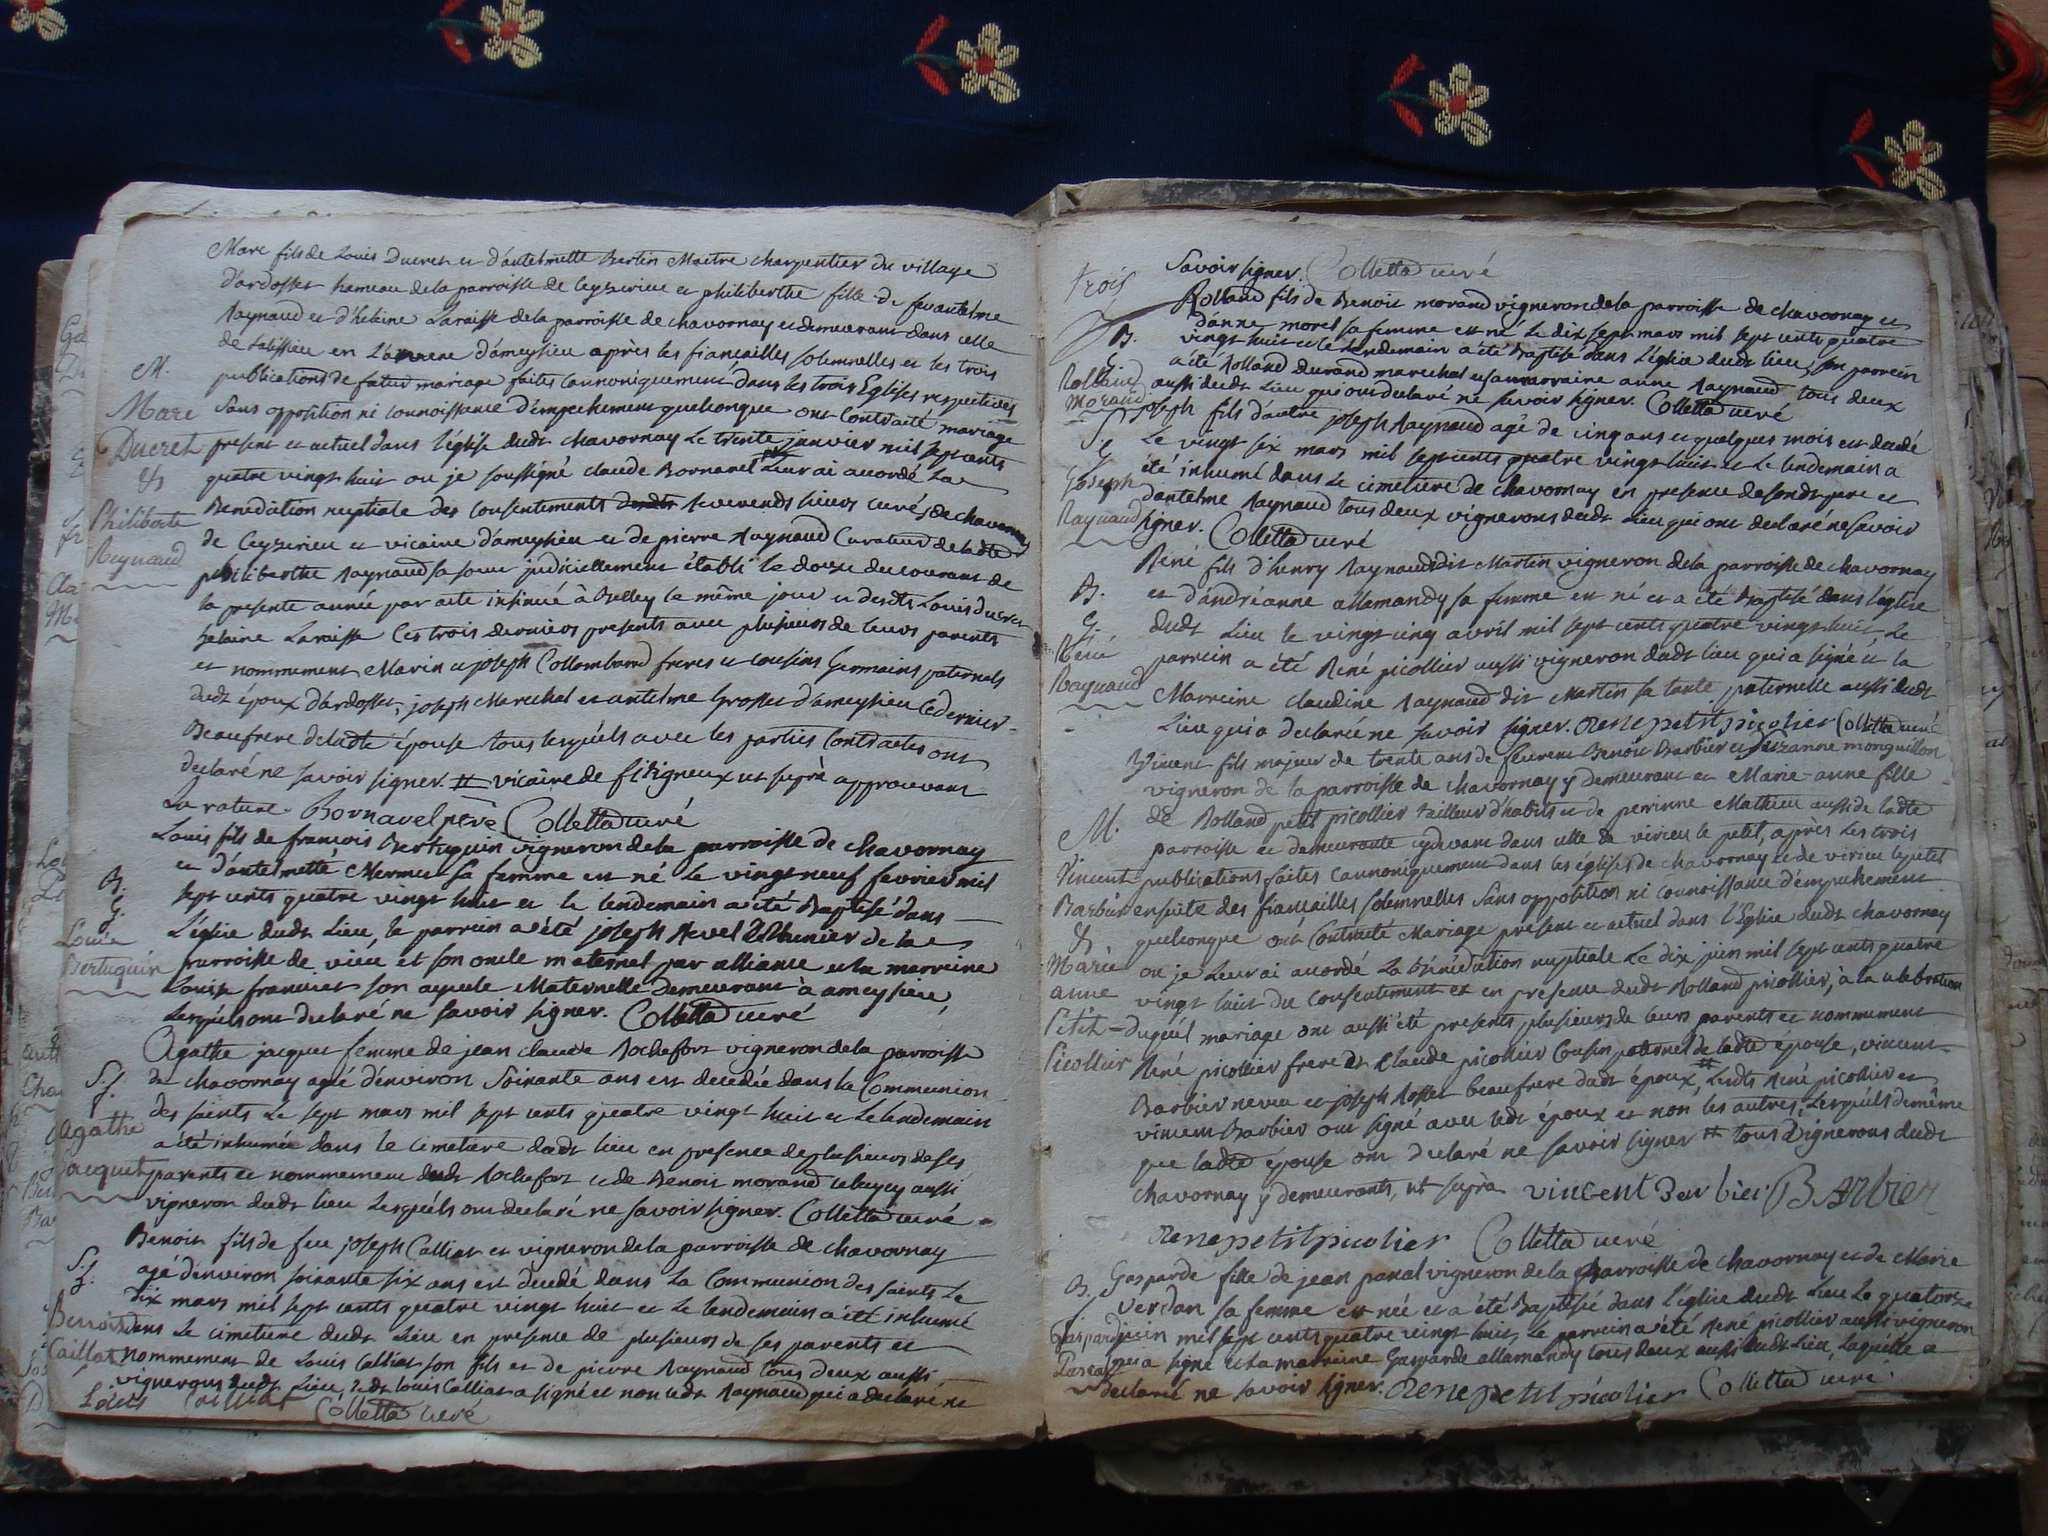 Marc fils de Louis Ducret et d'antelmette Bertin Maitre charpentier du village
d'ardosset hameau de la parroisse de Ceyzerieu et philiberthe fille de feu antelme
Raynaud et d'helaine Laraisse de la parroisse de chavornay et demeurant dans celle
de Talissieu en L'annexe d'ameysieu après les fiancailles solemnelles et les trois
publications de futur mariage faites cannoniquement dans les trois Eglises respectives
sans opposition ni connoissance d'empechement quelconque ont Contracté mariage
present et actuel dans l'église dudt chavornay Le trente janvier mil sept cents
quatre vingt huit ou je soussigné claude Bornavel Leur ai accordé La
Benediction nuptiale des consentements Reverends sieurs curés de chavornay
de Ceyzerieu et vicaire d'ameysieu et de pierre Raynaud Curateur de ladte
philiberthe Raynaud sa soeur judiciellement établi le douze du courant de
la presente année par acte insinué à Belley le même jour et desdts Louis ducret
helaine Laraisse Ces trois derniers presents avec plusieurs de leurs parents
et nommement Marin et joseph Collomband freres et cousins Germains paternels
dudt époux d'ardosset, joseph Marechal et antelme Grosset d'ameysieu Ce dernier
Beaufrere deladte épouse tous lesquels avec les parties Contractes ont
declaré ne savoir signer. # vicaire de fitigneux ut suprà approuvant
La rature. Bornavel ptre Colletta curé
M.
Marc
Ducret
&
Philiberte
Reynaud
Louis fils de francois Bertuquin vigneron de la parroisse de chavornay
et d'antelmette Mermet sa femme est né Le vingt neuf fevrier mil
sept cents quatre vingt huit et le lendemain a été Baptisé dans
L'église dudt Lieu, le parrein a été joseph Revel de la
parroisse de vieu, et son oncle maternel par alliance et la marreine
Louise francois son ayeule Maternelle Demeurant à ameysieu,
Lesquels ont declaré ne savoir signer. Colletta curé
B.
Louis
Bertuquin
Agathe jacquet femme de jean claude Rochefort vigneron de la parroisse
de chavornay agé d'environ Soixante ans est decedée dans la Communion
des saints Le sept mars mil sept cents quatre vingt huit et Le lendemain
a été inhumée dans le cimetiere dudt lieu en presence de plusieurs de ses
parents et nommement dudt Rochefort et de Benoit morand aussi
vigneron dudt lieu Lesquels ont declaré ne savoir signer. Colletta curé
S.
Agathe
Jacquet
Benoit fils de feu joseph Calliat et vigneron de la parroisse de chavornay
agé d'environ soixante six ans est decedé dans La Communion des saints Le
dix mars mil sept cents quatre vingt huit et Le lendemain a été inhumé
dans Le cimetiere dudt Lieu en presence de plusieurs de ses parents et
nommement de Louis Calliat son fils et de pierre Raynaud tous deux aussi
vignerons dudt Lieu, Ledt Louis Calliat a signé et non Ledt Raynaud qui a declaré ne
Louis Colletta curé
S.
Benoit
Caillat
trois
Savoir signer. Colletta curé
Rolland fils de Benoit morand vigneron de la parroisse de chavornay et
d'anne morel sa femme est né Le dix sept mars mil sept cents quatre
vingt huit et le Lendemain a été Baptisé dans L'église dudt lieu, son parrein
a été Rolland durand marechal et sa marraine anne Raynaud tous deux
aussi dudt Lieu qui ont declaré ne savoir signer. Colletta curé
B.
Rolland
Morand
joseph fils d'autre joseph Raynaud agé de cinq ans et quelques mois est decedé
Le vingt six mars mil sept cents quatre vingt huit et Le lendemain a
été inhumé dans Le cimetiere de chavornay en presence de sondt pere et
d'antelme Raynaud tous deux vignerons dudt Lieu qui ont declaré ne savoir
signer. Colletta curé
S.
Joseph
Raynaud
René fils d'henry Raynaud dit Martin vigneron de la parroisse de chavornay
et d'andréanne allamandy sa femme est né et a été Baptisé dans l'église
dudt Lieu le vingt cinq avril mil sept cents quatre vingt huit, Le
parrein a été René picollier aussi vigneron dudt lieu qui a signé et la
Marreine claudine Raynaud dit Martin sa tante paternelle aussi dudt
Lieu qui a declaré ne savoir signer. rene petit picolier Colletta curé
B.
René
Raynaud
Vincent fils majeur de trente ans de feu Benoit Barbier et suzanne monguillon
vigneron de la parroisse de chavornay y demeurant et Marie-anne fille
de Rolland petit picollier tailleur d'habits et de perinne Mathieu aussi de ladte
parroisse et demeurante cydevant dans celle de virieu le petit, après Les trois
publications faites cannoniquement dans les églises de chavornay et de virieu le petit
ensuite des fiancailles solemnelles sans opposition ni connoissance d'empechement
quelconque ont Contracté Mariage present et actuel dans l'Eglise dudt chavornay
ou je Leur ai accordé La bénédiction nuptiale Le dix juin mil sept cents quatre
vingt huit du Consentement et en presence dudt Rolland picollier, à la celebration
duquel mariage ont aussi été presents plusieurs de leurs parents et nommement
René picollier frere et Claude picollier Cousin paternel de ladte épouse, vincent
Barbier neveu et joseph Rosset beaufrere dudt époux, # Lesdts René picollier et
vincent Barbier ont signé avec ledt époux et non les autres, Lesquels de même
que ladte épouse ont declaré ne savoir signer # tous vignerons dudt
chavornay y demeurants, ut suprà vincent Barbier BArbier
rene petit picolier Colletta curé
M.
Vincent
Barbier
&
Marie
anne
Petit-
Picollier
Gasparde fille de jean pascal vigneron de la parroisse de chavornay et de Marie
verdan sa femme est née et a été Baptisée dans L'église dudt Lieu Le quatorze
juin mil sept cents quatre vingt huit, Le parrein a été René picollier aussi vigneron
qui a signé et La marreine Gasparde allamandy tous deux aussi dudt Lieu, Laquelle a
declaré ne savoir signer. rene petit picolier Colletta curé.
B.
Gasparde
Pascal